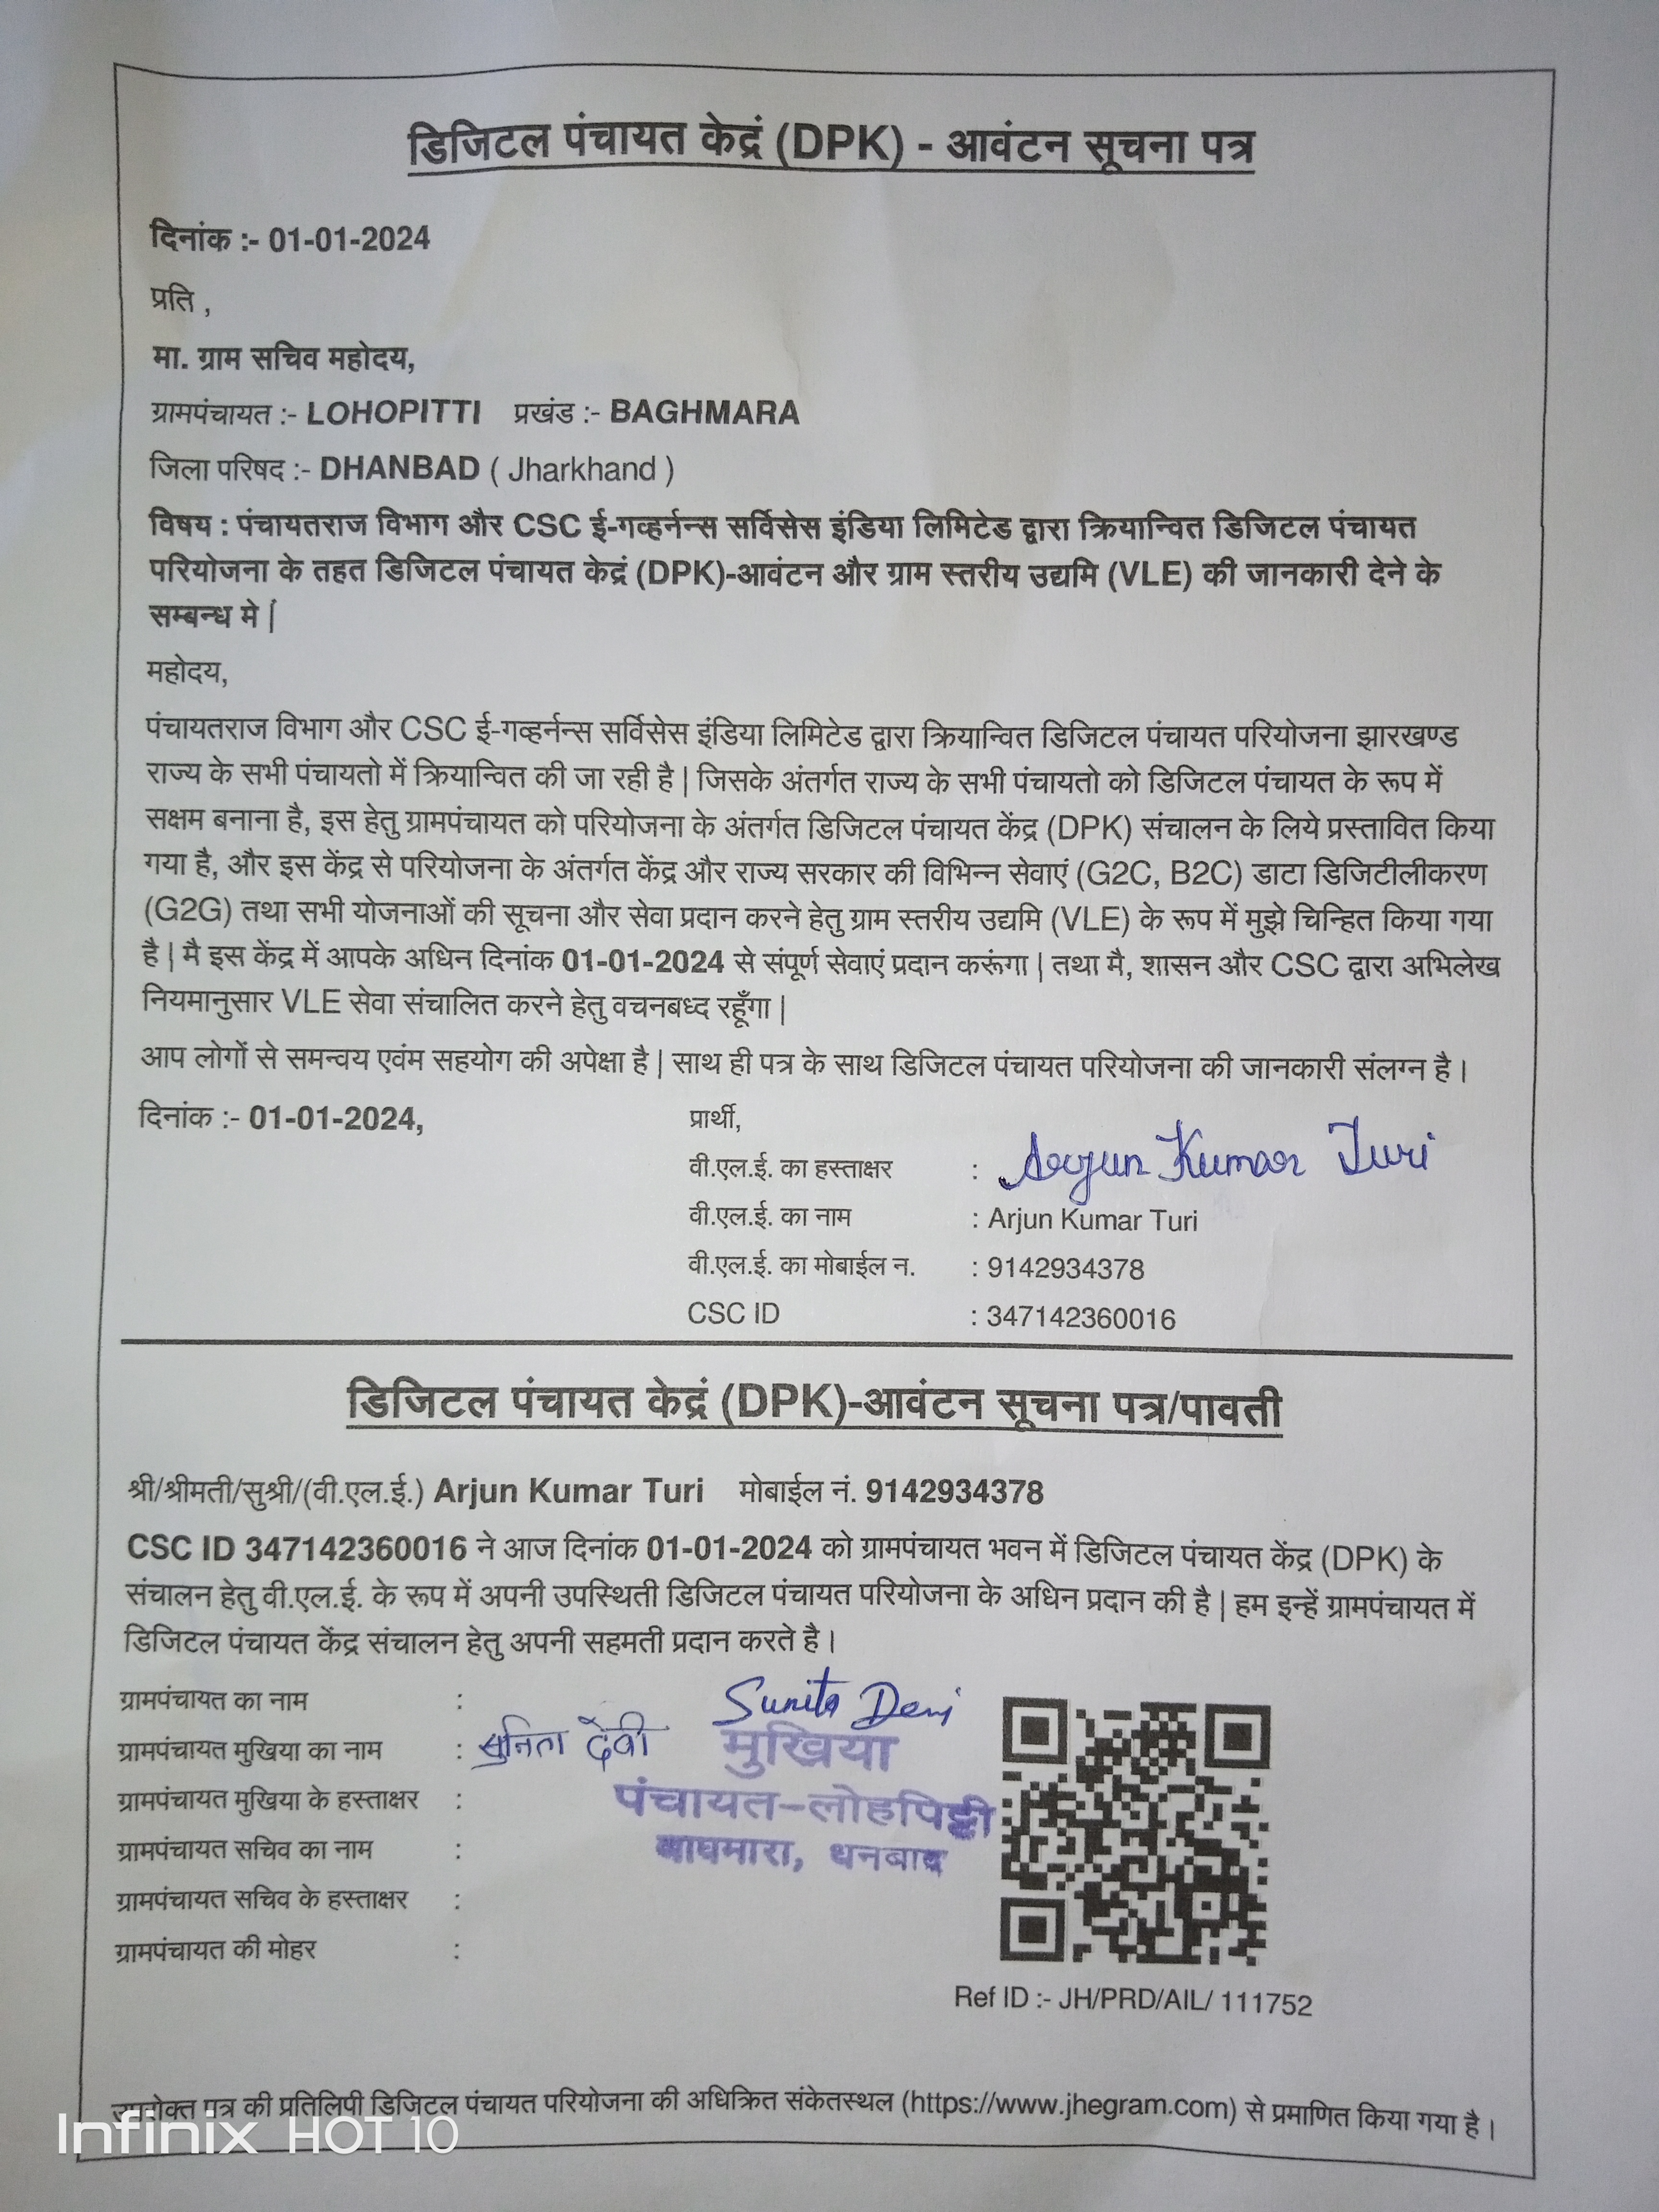 डिजिटल पंचायत केद्रं (DPK) - आवंटन सूचना पत्र
दिनांक :- 01-01-2024
प्रति ,
मा. ग्राम सचिव महोदय,
ग्रामपंचायत :- LOHOPITTI प्रखंड :- BAGHMARA
जिला परिषद :- DHANBAD ( Jharkhand )
विषय : पंचायतराज विभाग और CSC ई-गव्हर्नन्स सर्विसेस इंडिया लिमिटेड द्वारा क्रियान्वित डिजिटल पंचायत
परियोजना के तहत डिजिटल पंचायत केद्रं (DPK)-आवंटन और ग्राम स्तरीय उद्यमि (VLE) की जानकारी देने के
सम्बन्ध मे |
महोदय,
पंचायतराज विभाग और CSC ई-गव्हर्नन्स सर्विसेस इंडिया लिमिटेड द्वारा क्रियान्वित डिजिटल पंचायत परियोजना झारखण्ड
राज्य के सभी पंचायतो में क्रियान्वित की जा रही है | जिसके अंतर्गत राज्य के सभी पंचायतो को डिजिटल पंचायत के रूप में
सक्षम बनाना है, इस हेतु ग्रामपंचायत को परियोजना के अंतर्गत डिजिटल पंचायत केंद्र (DPK) संचालन के लिये प्रस्तावित किया
गया है, और इस केंद्र से परियोजना के अंतर्गत केंद्र और राज्य सरकार की विभिन्न सेवाएं (G2C, B2C) डाटा डिजिटीलीकरण
(G2G) तथा सभी योजनाओं की सूचना और सेवा प्रदान करने हेतु ग्राम स्तरीय उद्यमि (VLE) के रूप में मुझे चिन्हित किया गया
है | मै इस केंद्र में आपके अधिन दिनांक 01-01-2024 से संपूर्ण सेवाएं प्रदान करूंगा | तथा मै, शासन और CSC द्वारा अभिलेख
नियमानुसार VLE सेवा संचालित करने हेतु वचनबध्द रहूँगा |
आप लोगों से समन्वय एवंम सहयोग की अपेक्षा है | साथ ही पत्र के साथ डिजिटल पंचायत परियोजना की जानकारी संलग्न है।
दिनांक :- 01-01-2024, प्रार्थी,
वी.एल.ई. का हस्ताक्षर : Arjun Kumar Turi
वी.एल.ई. का नाम : Arjun Kumar Turi
वी.एल.ई. का मोबाईल न. : 9142934378
CSC ID : 347142360016
डिजिटल पंचायत केद्रं (DPK)-आवंटन सूचना पत्र/पावती
श्री/श्रीमती/सुश्री/(वी.एल.ई.) Arjun Kumar Turi मोबाईल नं. 9142934378
CSC ID 347142360016 ने आज दिनांक 01-01-2024 को ग्रामपंचायत भवन में डिजिटल पंचायत केंद्र (DPK) के
संचालन हेतु वी.एल.ई. के रूप में अपनी उपस्थिती डिजिटल पंचायत परियोजना के अधिन प्रदान की है | हम इन्हें ग्रामपंचायत में
डिजिटल पंचायत केंद्र संचालन हेतु अपनी सहमती प्रदान करते है।
ग्रामपंचायत का नाम :
Sunita Devi
ग्रामपंचायत मुखिया का नाम : सुनिता देवी
मुखिया
पंचायत-लोहपिट्टी
बाघमारा, धनबाद
ग्रामपंचायत मुखिया के हस्ताक्षर :
ग्रामपंचायत सचिव का नाम :
ग्रामपंचायत सचिव के हस्ताक्षर :
ग्रामपंचायत की मोहर :
Ref ID :- JH/PRD/AIL/ 111752
उपरोक्त पत्र की प्रतिलिपी डिजिटल पंचायत परियोजना की अधिक्रित संकेतस्थल (https://www.jhegram.com) से प्रमाणित किया गया है।
Infinix HOT 10